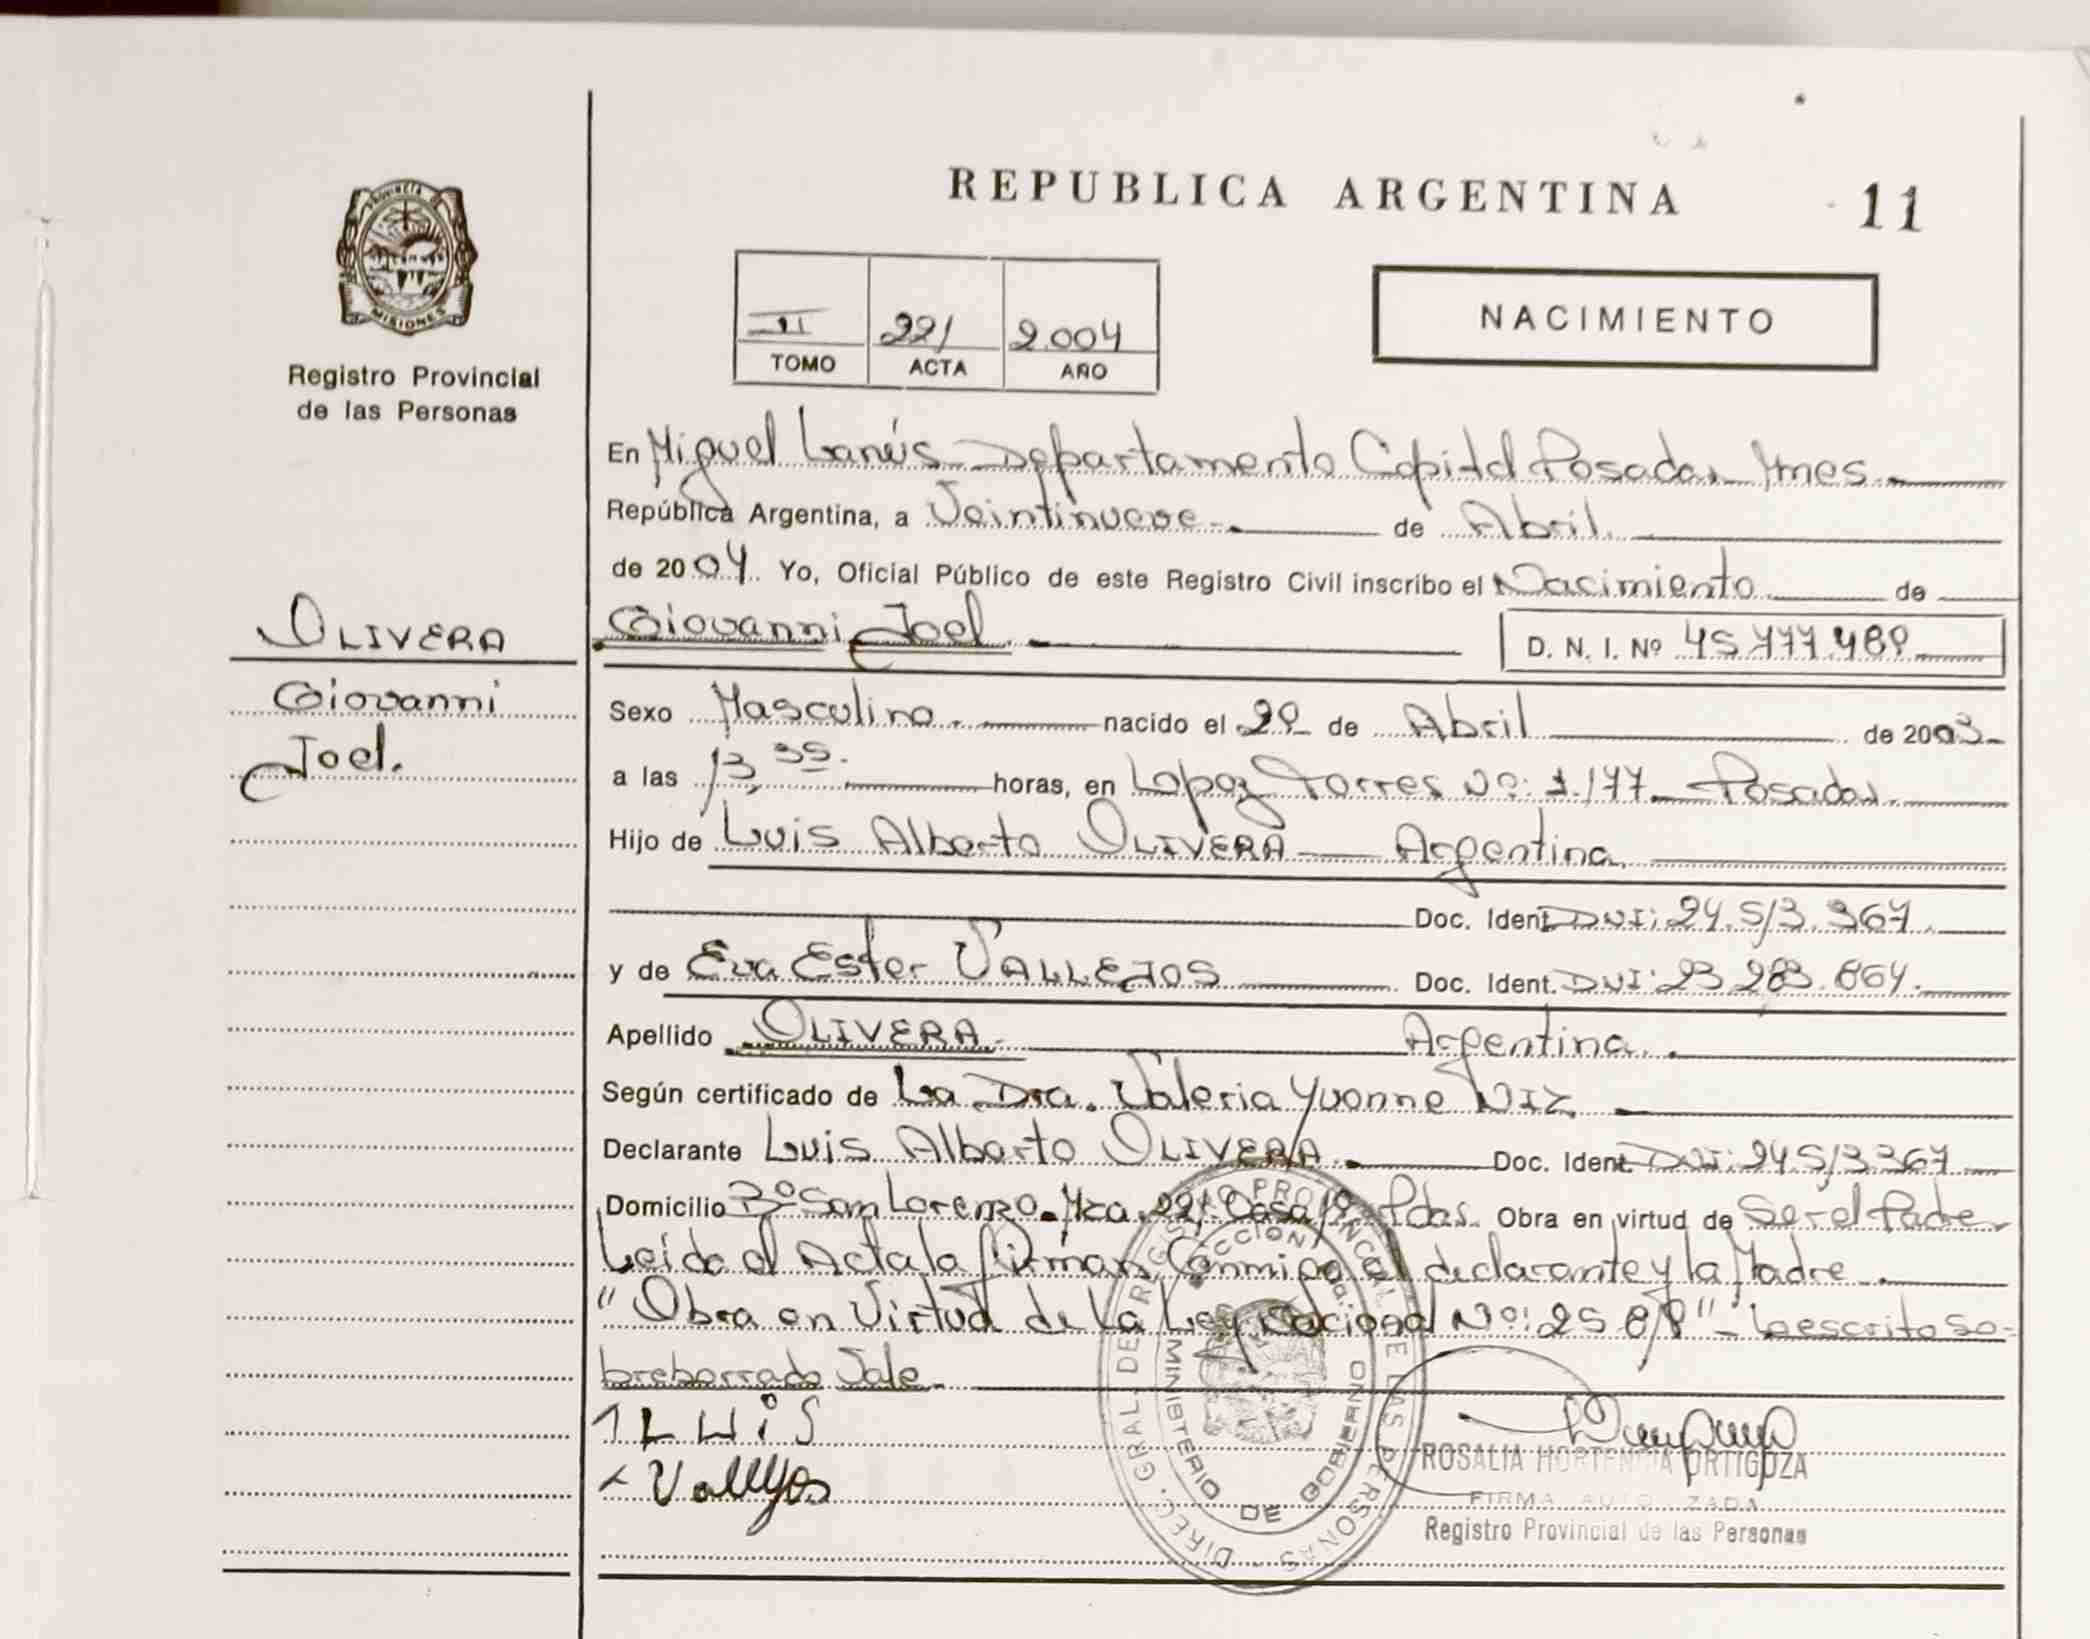 REPUBLICA ARGENTINA
11
PROVINCIA DE
MISIONES
Registro Provincial
de las Personas
II 221 2.004
TOMO ACTA AÑO
NACIMIENTO
En Miguel Lanús Departamento Capital Posadas Mnes.
República Argentina, a Veintinueve de Abril
de 2004 Yo, Oficial Público de este Registro Civil inscribo el Nacimiento de
OLIVERA
Giovanni Joel
Giovanni Joel. D. N. I. Nº 45.777.489
Sexo Masculino. nacido el 29 de Abril de 2003
a las 13,35. horas, en Lopez Torres Nº: 1.177 Posadas.
Hijo de Luis Alberto OLIVERA Argentina.
Doc. Ident. DNI: 24.513.367.
y de Eva Ester VALLEJOS Doc. Ident. DNI: 23.283.864.
Apellido OLIVERA. Argentina.
Según certificado de La Dra. Valeria Yvonne NIZ.
Declarante Luis Alberto OLIVERA. Doc. Ident. DNI: 24.513.367
Domicilio Bº San Lorenzo. Mza. 221. Casa Pdas. Obra en virtud de Ser el Padre
Leida el Acta la firman Conmigo el declarante y la Madre
"Obra en Virtud de La Ley Nacional Nº: 25.819" Lo escrito so-
breborrado Vale.
LUIS
Vallejos
DIREC. GRAL. DE REGISTRO PROVINCIAL DE LAS PERSONAS
MINISTERIO DE GOBIERNO
ROSALIA HORTENCIA ORTIGOZA
FIRMA AUTORIZADA
Registro Provincial de las Personas